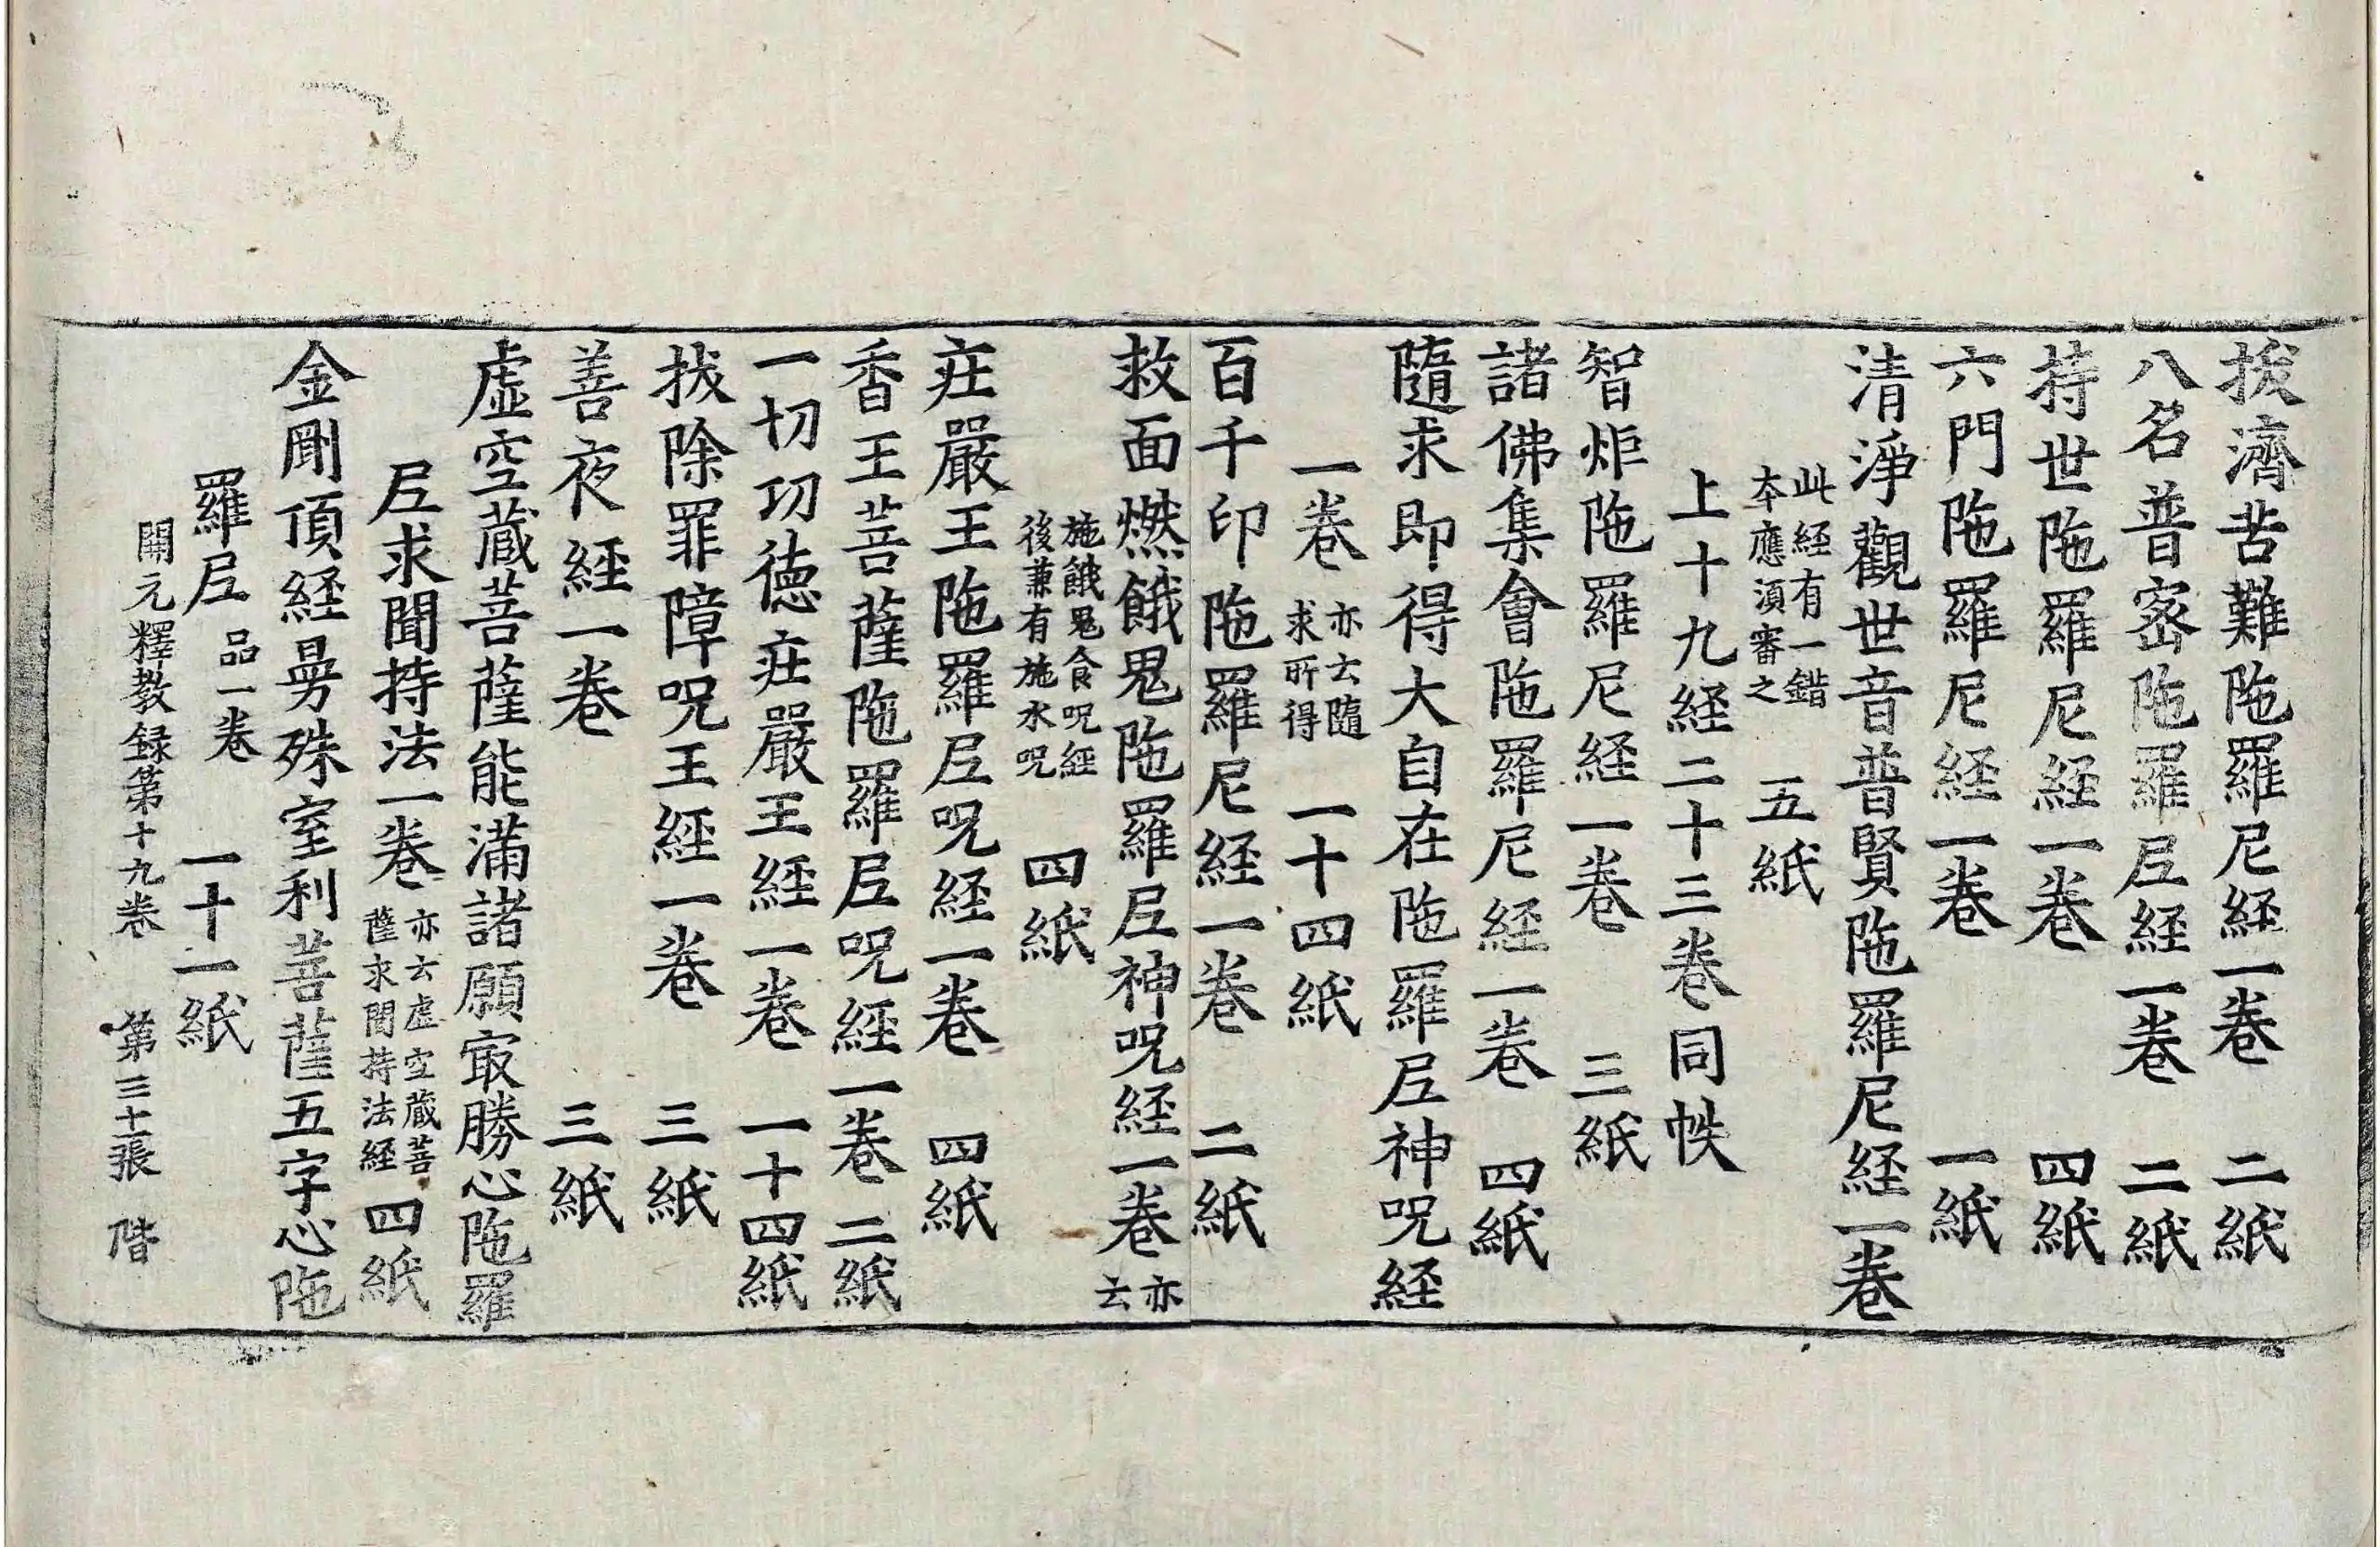 拔濟苦難陁羅尼経一卷 二紙
八名普宻陁羅𡰱経一卷 二紙
持世陁羅尼経一卷 四紙
六門陁羅尼経一卷 一紙
清淨觀世音普賢陁羅尼経一卷
此経有一錯本應湏審之 五紙
上十九経二十三卷同帙
智炬陁羅尼経一卷 三紙
諸佛集會陁羅尼経一卷 四紙
隨求即得大自在陁羅𡰱神呪経
一卷 亦云隨求所得 一十四紙
百千印陁羅尼経一卷 二紙
救面燃餓鬼陁羅𡰱神呪経一卷 亦云
施餓鬼食呪經後兼有施水呪 四紙
庄嚴王陁羅𡰱呪経一卷 四紙
香王菩薩陁羅𡰱呪經一卷 二紙
一切功德庄嚴王經一卷 一十四紙
拔除罪障呪王經一卷 三紙
善夜經一卷 三紙
虛空蔵菩薩能滿諸願冣勝心陁羅
𡰱求聞持法一卷 亦云虛空蔵菩薩求聞持法経 四紙
金剛頂経曼殊室利菩薩五字心陁
羅𡰱 品一卷 一十一紙
開元釋教録第十九卷 第三十張 階